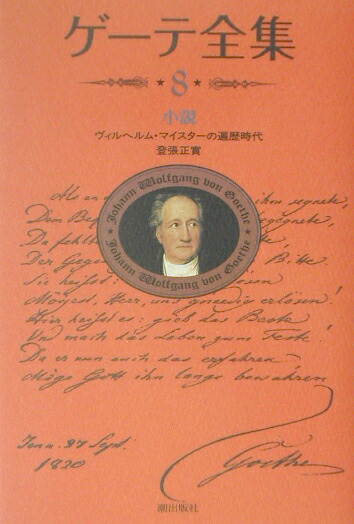 ゲーテ全集
8
小説
ヴィルヘルム・マイスターの遍歴時代
登張正實
Johann Wolfgang von Goethe
Johann Wolfgang von Goethe
Als an ihm segnete,
Dem
Da fehlt
Der Bitte.
Sie heißt:
Mögest, Herr, uns gnaedig erlösen!
Hier heißt es: gieb das Beste
Und mach das Leben zum Feste!
Da er nun auch das erfahren
Möge Gott ihn lange bewahren
Jena. 27 Sept.
1820
Goethe
潮出版社